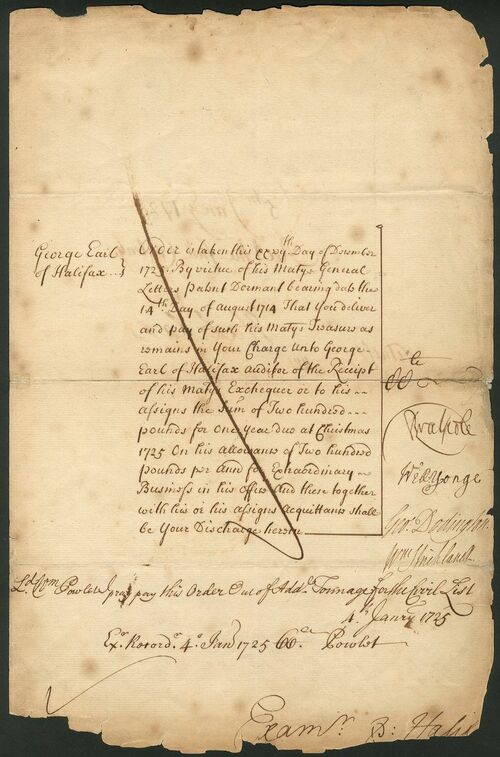 George Earl
of Halifax...}
Order is taken this xxvij.th Day of December
1725. By virtue of his Matys General
Letters patent Dormant bearing date the
14th Day of August 1714 That You deliver
and pay of such his Matys Treasure as
remains in Your Charge Unto George
Earl of Halifax Auditor of the Receipt
of his Matys Exchequer or to his
assigns the Sum of Two hundred
pounds for One Year due at Christmas
1725 On his Allowance of Two hundred
pounds per Ann for Extraordinary
Business in his Office And these together
with his or his assigns Acquittance shall
be Your Discharge herein
RWalpole
Wm Yonge
Geo: Dodington
Wm Strickland
pray pay this Order Out of Tonnage for the Civil List
4.th Janry 1725
Ex. Record. 4.o Jan 1725 Powlet
Examr